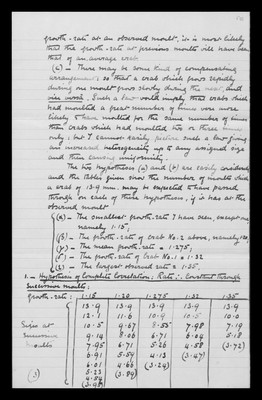 growth-rate at an observed moult, it is most likely
that the growth-rate at previous moults will have been
that of an average crab.
(c) — There may be some kind of compensating
arrangement; so that a crab which grows rapidly
during one moult grows slowly during the next, and
vice versâ. Such a law would imply that crabs which
had moulted a great number of times were more
likely to have moulted for the same number of times
than crabs which had moulted two or three times
only; but I cannot easily picture such a law giving
an increased heterogeneity up to any assigned size
and then causing uniformity.
The two hypotheses (a) and (b) are easily considered,
and the tables given show the number of moults which
a crab of 13.9 mm. may be expected to have passed
through on each of these hypotheses, if it has at the
observed moult
(α) — The smallest growth-rate I have seen, except one,
namely 1.15;
(β) — The growth-rate of crab No. 2 above, namely, 1.20,
(γ) — The mean growth-rate = 1.275;
(δ) — The growth-rate of Crab No. 1 = 1.32
(ε) — The largest observed rate = 1.35.
1. — Hypothesis of Complete Correlation: Rate, is constant through
successive moults:
growth-rate: 1.15 1.20 1.275 1.32 1.35
13.9 13.9 13.9 13.9 13.9
12.1 11.6 10.9 10.5
Sizes at 10.5 9.67 8.55 7.98 7.19
successive 9.14 8.06 6.71 6.04 5.18
moults 7.95 6.71 5.26 4.58 (3.72)
6.91 5.59 4.13 (3.47)
6.01 4.66 (3.24)
5.23 (3.89)
4.54
(3)